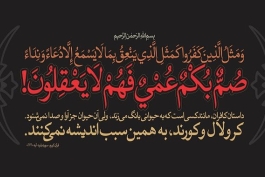 بسم‌الله الرحمن الرحیم
وَمَثَلُ الَّذِینَ کَفَرُوا کَمَثَلِ الَّذِي یَنْعِقُ بِمَا لَا یَسْمَعُ إِلَّا دُعَاءً وَنِدَاءً
صُمٌّ بُكْمٌ عُمْيٌ فَهُمْ لَا یَعْقِلُونَ!
داستان کافران، مانند کسی است که به حیوانی بانگ می‌زند، ولی آن حیوان جز آوا و صدا نمی‌شنود.
کر و لال و کورند، به همین سبب اندیشه نمی‌کنند.